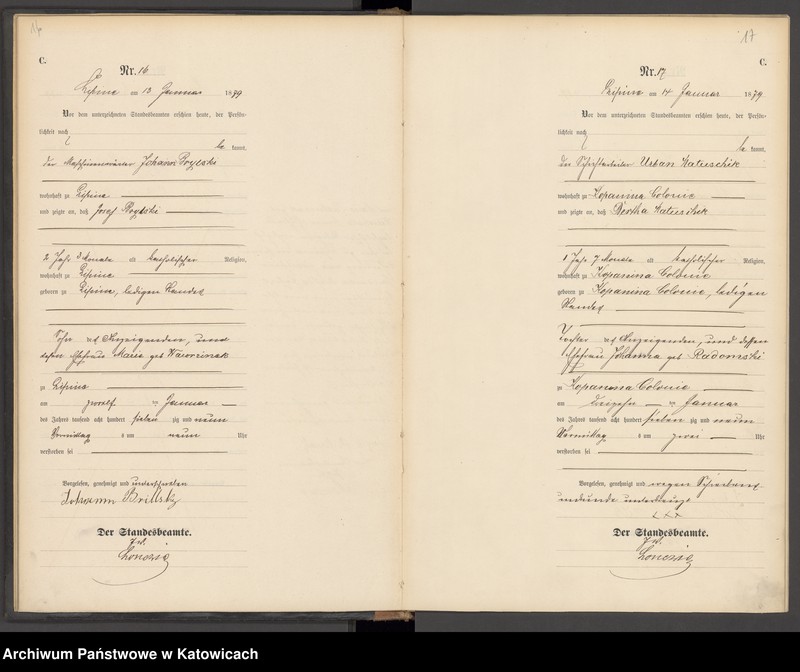 16
C.
Nr. 16
Lipine am 13 Januar 1879
Vor dem unterzeichneten Standesbeamten erschien heute, der Persön-
lichkeit nach
be kannt,
der Maschinenwärter Johann
wohnhaft zu Lipine
und zeigte an, daß Josef
2 Jahr Monate alt katholischer Religion,
wohnhaft zu Lipine
geboren zu Lipine, ledigen Standes
Sohn des Anzeigenden, und
dessen Ehefrau Marie geb
zu Lipine
am zwölf ten Januar
des Jahres tausend acht hundert sieben zig und neun
Vormittag s um neun Uhr
verstorben sei
Vorgelesen, genehmigt und unterschrieben
Johann
Der Standesbeamte.
17
C.
Nr. 17
Lipine am 14 Januar 1879
Vor dem unterzeichneten Standesbeamten erschien heute, der Persön-
lichkeit nach
be kannt,
der Urban Matuschik
wohnhaft zu Kopanina Colonie
und zeigte an, daß Bertha Matuschik
1 Jahr 7 Monate alt katholischer Religion,
wohnhaft zu Kopanina Colonie
geboren zu Kopanina Colonie, ledigen
Standes
Tochter des Anzeigenden, und dessen
Ehefrau Johanna geb Radomski
zu Kopanina Colonie
am dreizehn ten Januar
des Jahres tausend acht hundert sieben zig und neun
Vormittag s um zwei Uhr
verstorben sei
Vorgelesen, genehmigt und wegen Schreibens
unkunde unterkreuzt
xxx
Der Standesbeamte.
Archiwum Państwowe w Katowicach